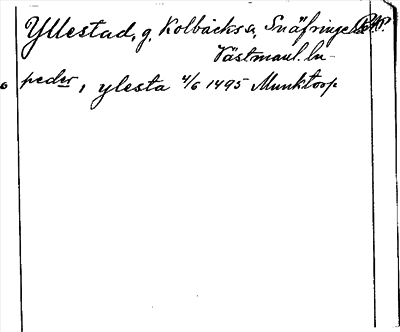 Yllestad, g. Kolbäcks s, Snäfringe hd
Västmanl. ln
peder, i ylesta 4/6 1495 Munktorp